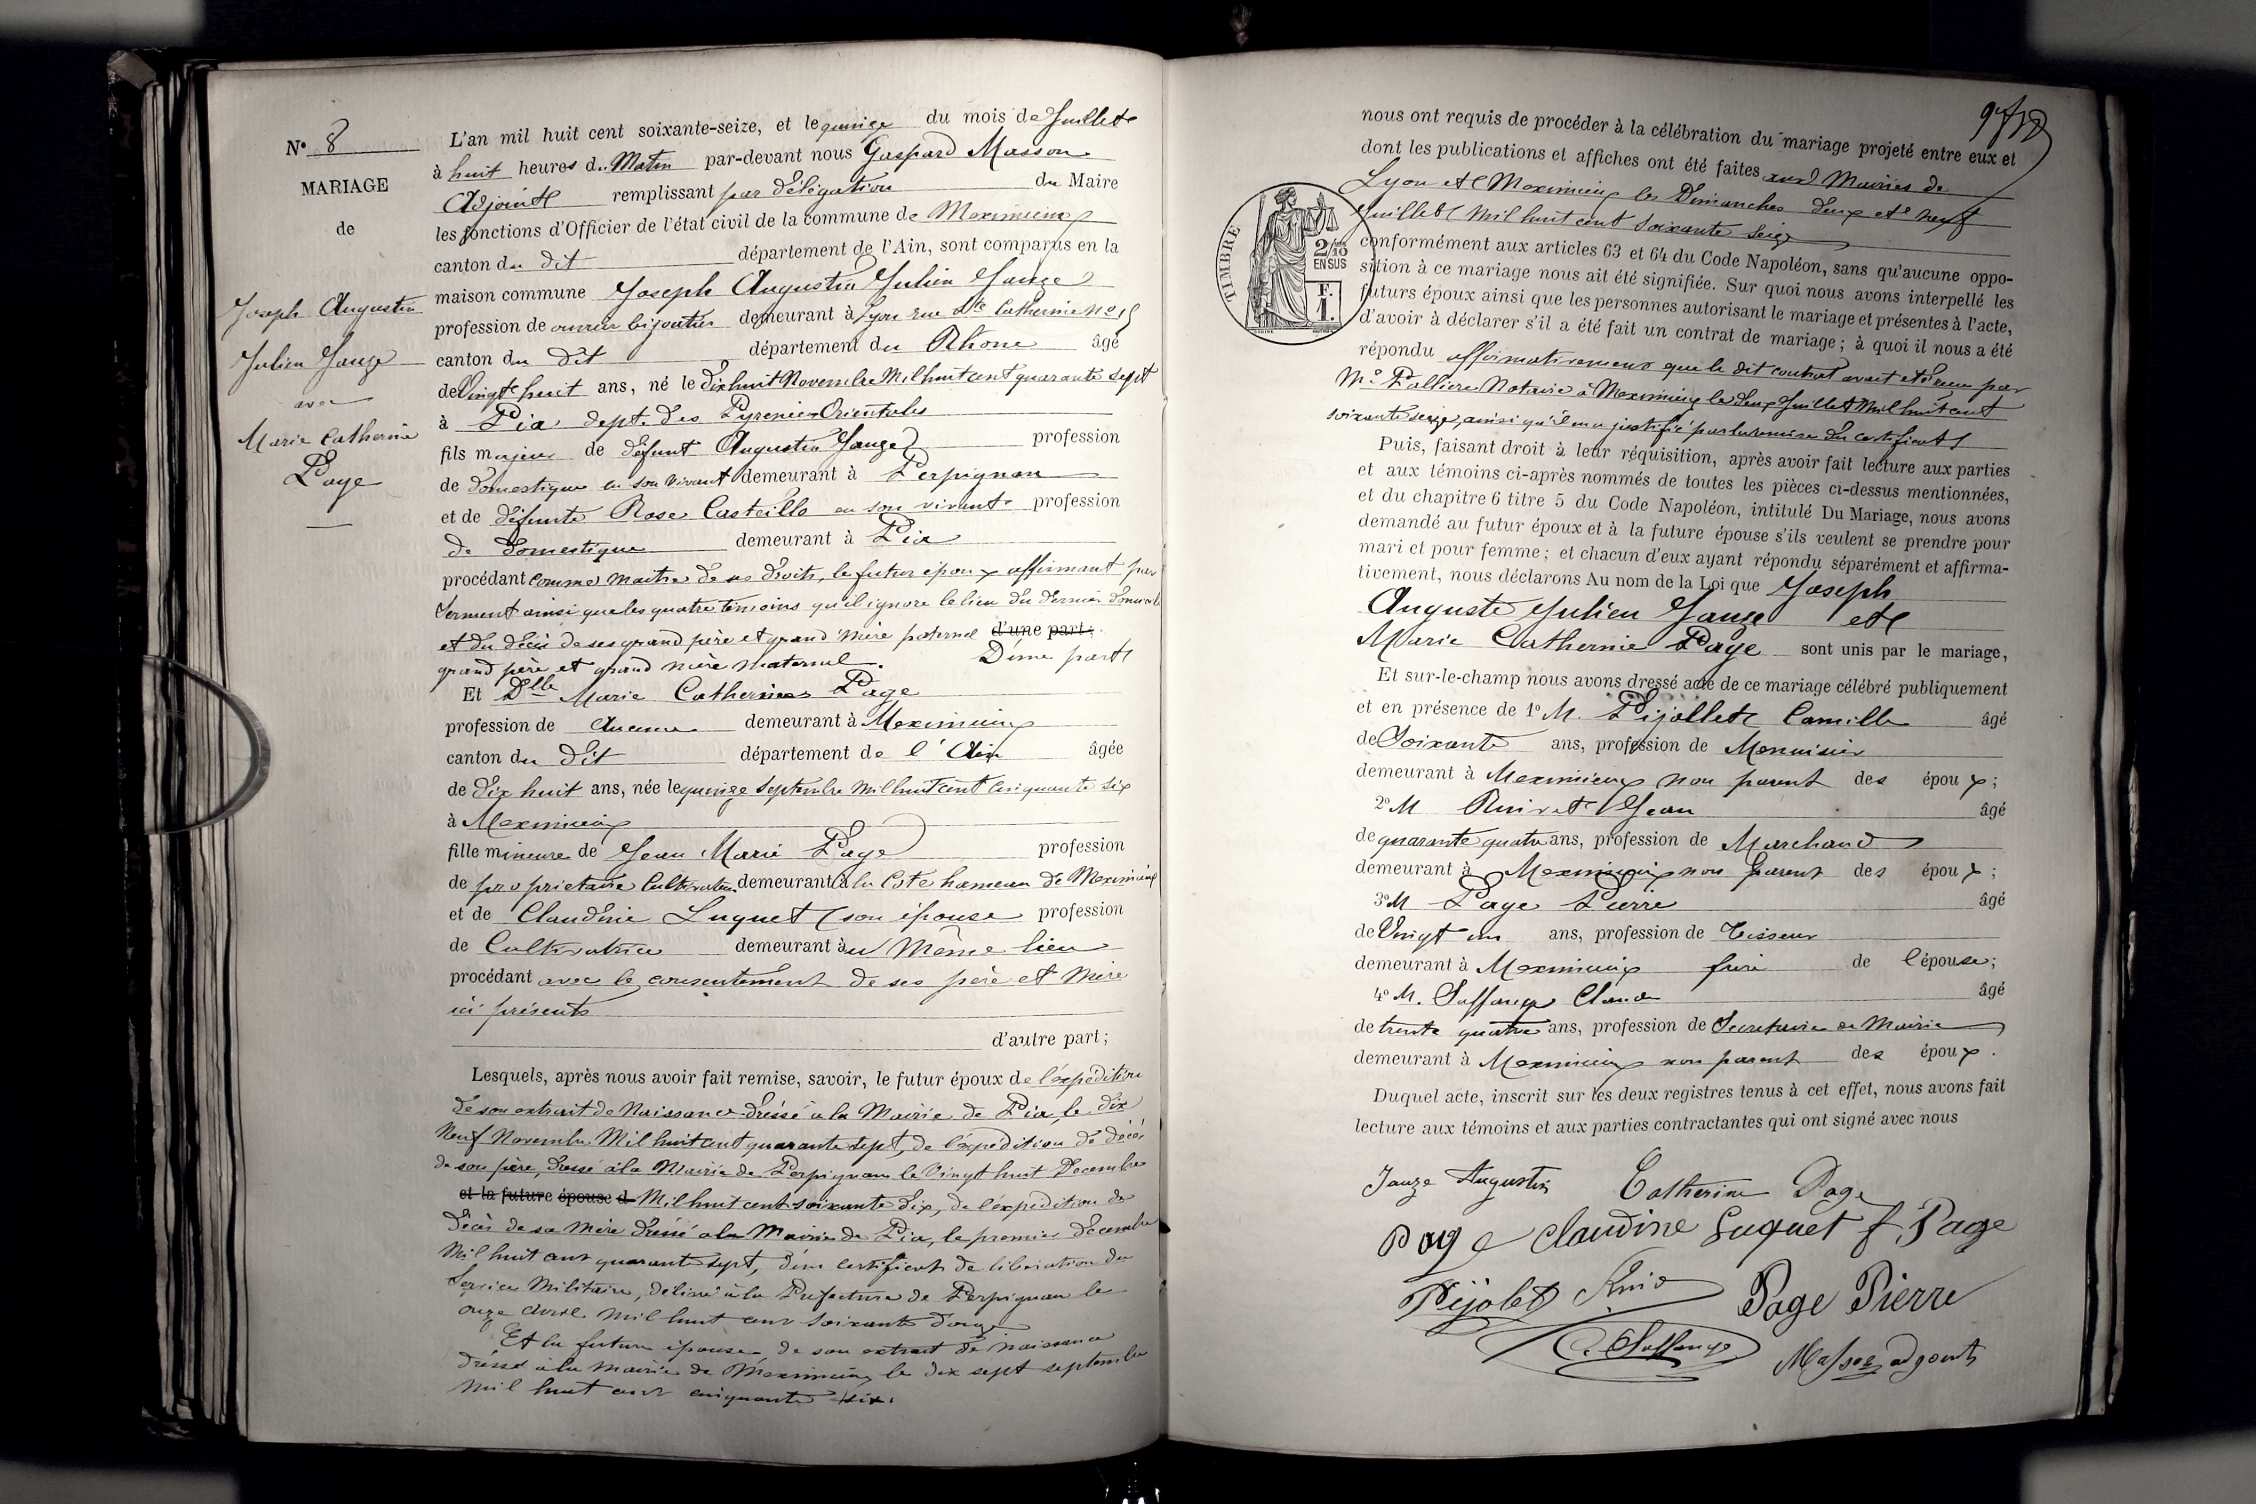 N° 8
MARIAGE
de
Joseph Augustin
Julien Jauze
avec
Marie Catherine
Page
L'an mil huit cent soixante-seize, et le quinze du mois de Juillet
à huit heures du Matin par-devant nous Gaspard Masson
Adjoint remplissant par délégation du Maire
les fonctions d'Officier de l'état civil de la commune de Meximieux
canton du dit département de l'Ain, sont comparus en la
maison commune Joseph Augustin Julien Jauze
profession de ouvrier bijoutier demeurant à Lyon rue Ste Catherine No 15
canton du dit département du Rhone âgé
de Vingt huit ans, né le dix huit Novembre Mil huit cent quarante sept
à Pia dept. des Pyrenées Orientales
fils majeur de défunt Augustin Jauze profession
de domestique en son vivant demeurant à Perpignan
et de défunte Rose Casteillo en son vivant profession
de domestique demeurant à Pia
procédant comme maitre de ses droits, le futur époux affirmant par
serment ainsi que les quatre témoins qu'il ignore le lieu du dernier domicile
et du décès de ses grand père et grand mère paternel d'une part;
grand père et grand mère maternel. D'une part
Et Dlle Marie Catherine Page
profession de Aucune demeurant à Meximieux
canton du dit département de l'Ain âgée
de dix huit ans, née le quinze Septembre Mil huit cent cinquante six
à Meximieux
fille mineure de Jean Marie Page profession
de proprietaire Cultivateur demeurant à la Cote hameau de Meximieux
et de Claudine Luquet son épouse profession
de Cultivatrice demeurant au Même lieu
procédant avec le consentement de ses père et Mère
ici présents
d'autre part;
Lesquels, après nous avoir fait remise, savoir, le futur époux de l'expédition
de son extrait de Naissance dressé à la Mairie de Pia, le dix
Neuf Novembre Mil huit cent quarante sept, de l'expédition de décès
de son père, dressé à la Mairie de Perpignan le Vingt huit Decembre
et la future épouse d Mil huit cent soixante dix, de l'expédition de
décès de sa Mère dressé à la Mairie de Pia, le premier Decembre
Mil huit cent quarante sept, d'un certificat de libération du
Service Militaire, délivré à la Prefecture de Perpignan le
onze Avril mil huit cent soixante douze
Et la future épouse de son extrait de naissance
dressé à la mairie de Meximieux le dix sept septembre
mil huit cent cinquante six.
nous ont requis de procéder à la célébration du mariage projeté entre eux et
dont les publications et affiches ont été faites aux Mairies de
Lyon et Meximieux les Dimanches deux et neuf
Juillet Mil huit cent soixante Seize
TIMBRE
2/10
EN SUS
F.
1.
conformément aux articles 63 et 64 du Code Napoléon, sans qu'aucune oppo-
sition à ce mariage nous ait été signifiée. Sur quoi nous avons interpellé les
futurs époux ainsi que les personnes autorisant le mariage et présentes à l'acte,
d'avoir à déclarer s'il a été fait un contrat de mariage; à quoi il nous a été
répondu affirmativement que le dit contrat avait été reçu par
Me Pallière Notaire à Meximieux le deux Juillet Mil huit cent
soixante seize, ainsi qu'il en a justifié par la remise du certificat
Puis, faisant droit à leur réquisition, après avoir fait lecture aux parties
et aux témoins ci-après nommés de toutes les pièces ci-dessus mentionnées,
et du chapitre 6 titre 5 du Code Napoléon, intitulé Du Mariage, nous avons
demandé au futur époux et à la future épouse s'ils veulent se prendre pour
mari et pour femme; et chacun d'eux ayant répondu séparément et affirma-
tivement, nous déclarons Au nom de la Loi que Joseph
Auguste Julien Jauze et
Marie Catherine Page sont unis par le mariage,
Et sur-le-champ nous avons dressé acte de ce mariage célébré publiquement
et en présence de 1° M. Pijollet Camille âgé
de Soixante ans, profession de Menuisier
demeurant à Meximieux non parent des époux;
2° M Ruivet Jean âgé
de quarante quatre ans, profession de Marchand
demeurant à Meximieux non parent des époux;
3° M Page Pierre âgé
de Vingt un ans, profession de Tisseur
demeurant à Meximieux frère de l'épouse;
4° M. Saffange Claude âgé
de trente quatre ans, profession de Secretaire de Mairie
demeurant à Meximieux non parent des époux.
Duquel acte, inscrit sur les deux registres tenus à cet effet, nous avons fait
lecture aux témoins et aux parties contractantes qui ont signé avec nous
Jauze Augustin Catherine Page
Page Claudine Luquet f. Page
Pijolet Page Pierre
C. Saffange Masson adjoint